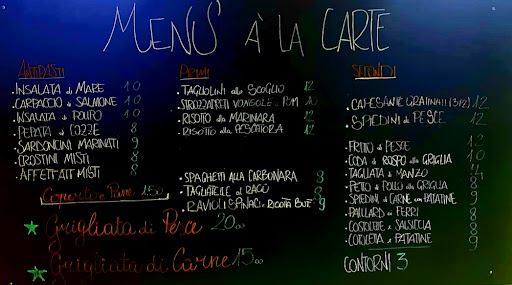 MENU' À LA CARTE
ANTIPASTI
INSALATA di MARE 10
CARPACCIO di SALMONE 10
INSALATA di POLPO 10
PEPATA di COZZE 8
SARDONCINI MARINATI 9
CROSTINI MISTI 8
AFFETTATI MISTI 8
Coperto e Pane 1,50
PRIMI
TAGLIOLINI allo SCOGLIO 12
STROZZAPRETI VONGOLE e POM 10
RISOTTO alla MARINARA 12
RISOTTO alla PESCATORA 12
SPAGHETTI ALLA CARBONARA 8
TAGLIATELLE al RAGÙ 8
RAVIOLI SPINACI e RICOTTA BUT 9
SECONDI
CAPESANTE GRATINATI (3pz) 12
SPIEDINI di PESCE 12
FRITTO di PESCE 12
CODA di ROSPO alla GRIGLIA 10
TAGLIATA di MANZO 14
PETTO di POLLO alla GRIGLIA 8
SPIEDINI di CARNE con PATATINE 9
PAILLARD ai FERRI 8
COSTOLETTE e SALSICCIA 8
COTOLETTA e PATATINE 9
CONTORNI 3
Grigliata di Pesce 20,00
Grigliata di Carne 15,00